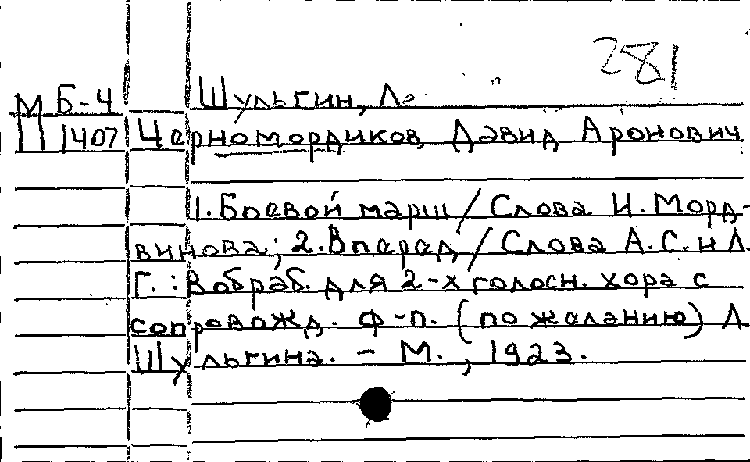 281
М Б-4 Шульгин, Л.
П 1407 Черномордиков, Давид Аронович
1. Боевой марш / Слова И. Морд-
винова; 2. Вперед / Слова А.С. и Л.
Г. : В обраб. для 2-х голосн. хора с
сопровожд. ф-п. (по желанию) Л.
Шульгина. - М., 1923.